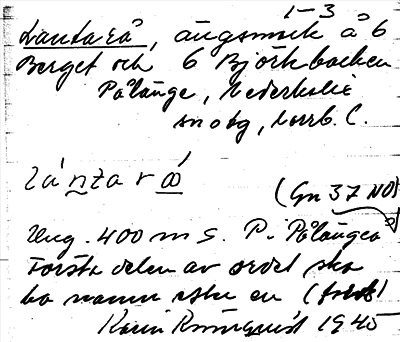 1-3
Lantarå, ängsmark å 6
Berget och 6 Björkbacken
Pålänge, Nederkalix
snobg, Norrb. l.
lánṯarā́
(Gn 37 NO)
Ung. 400 m S. P. i Pålänge
Första delen av ordet ska
ha namn en
Karin Rönnquist 1945